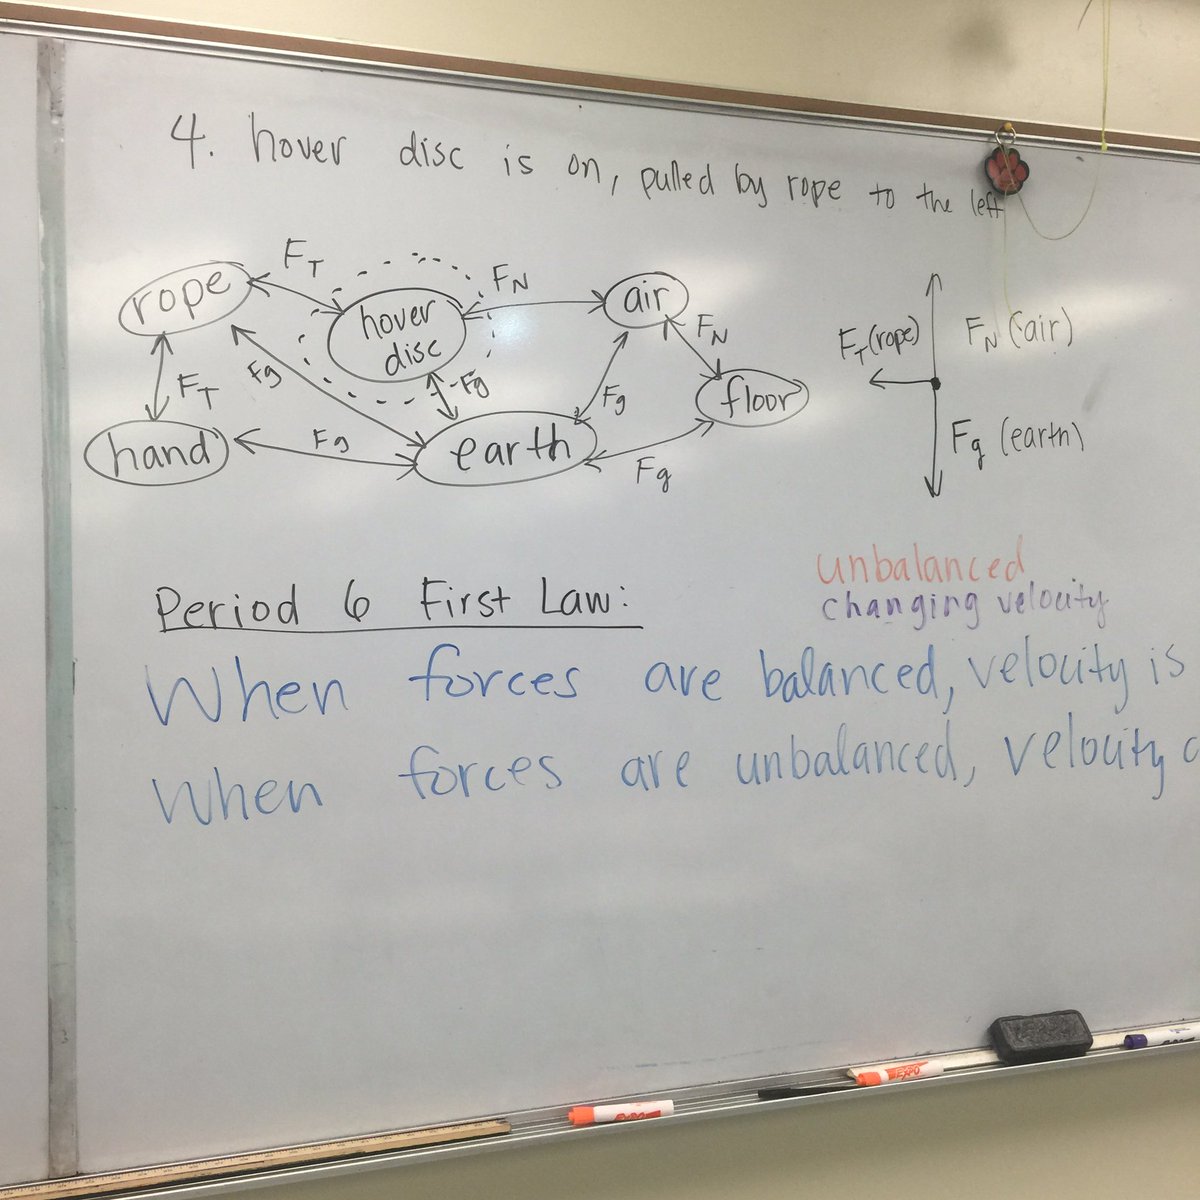 4. hover disc is on, pulled by rope to the left
FT
FN
rope
hover
disc
air
FN
FT
Fg
Fg
Fg
floor
hand
Fg
earth
Fg
FT (rope)
FN (air)
Fg (earth)
unbalanced
changing velocity
Period 6 First Law:
When forces are balanced, velocity is
When forces are unbalanced, velocity c
EXPO
EXPO